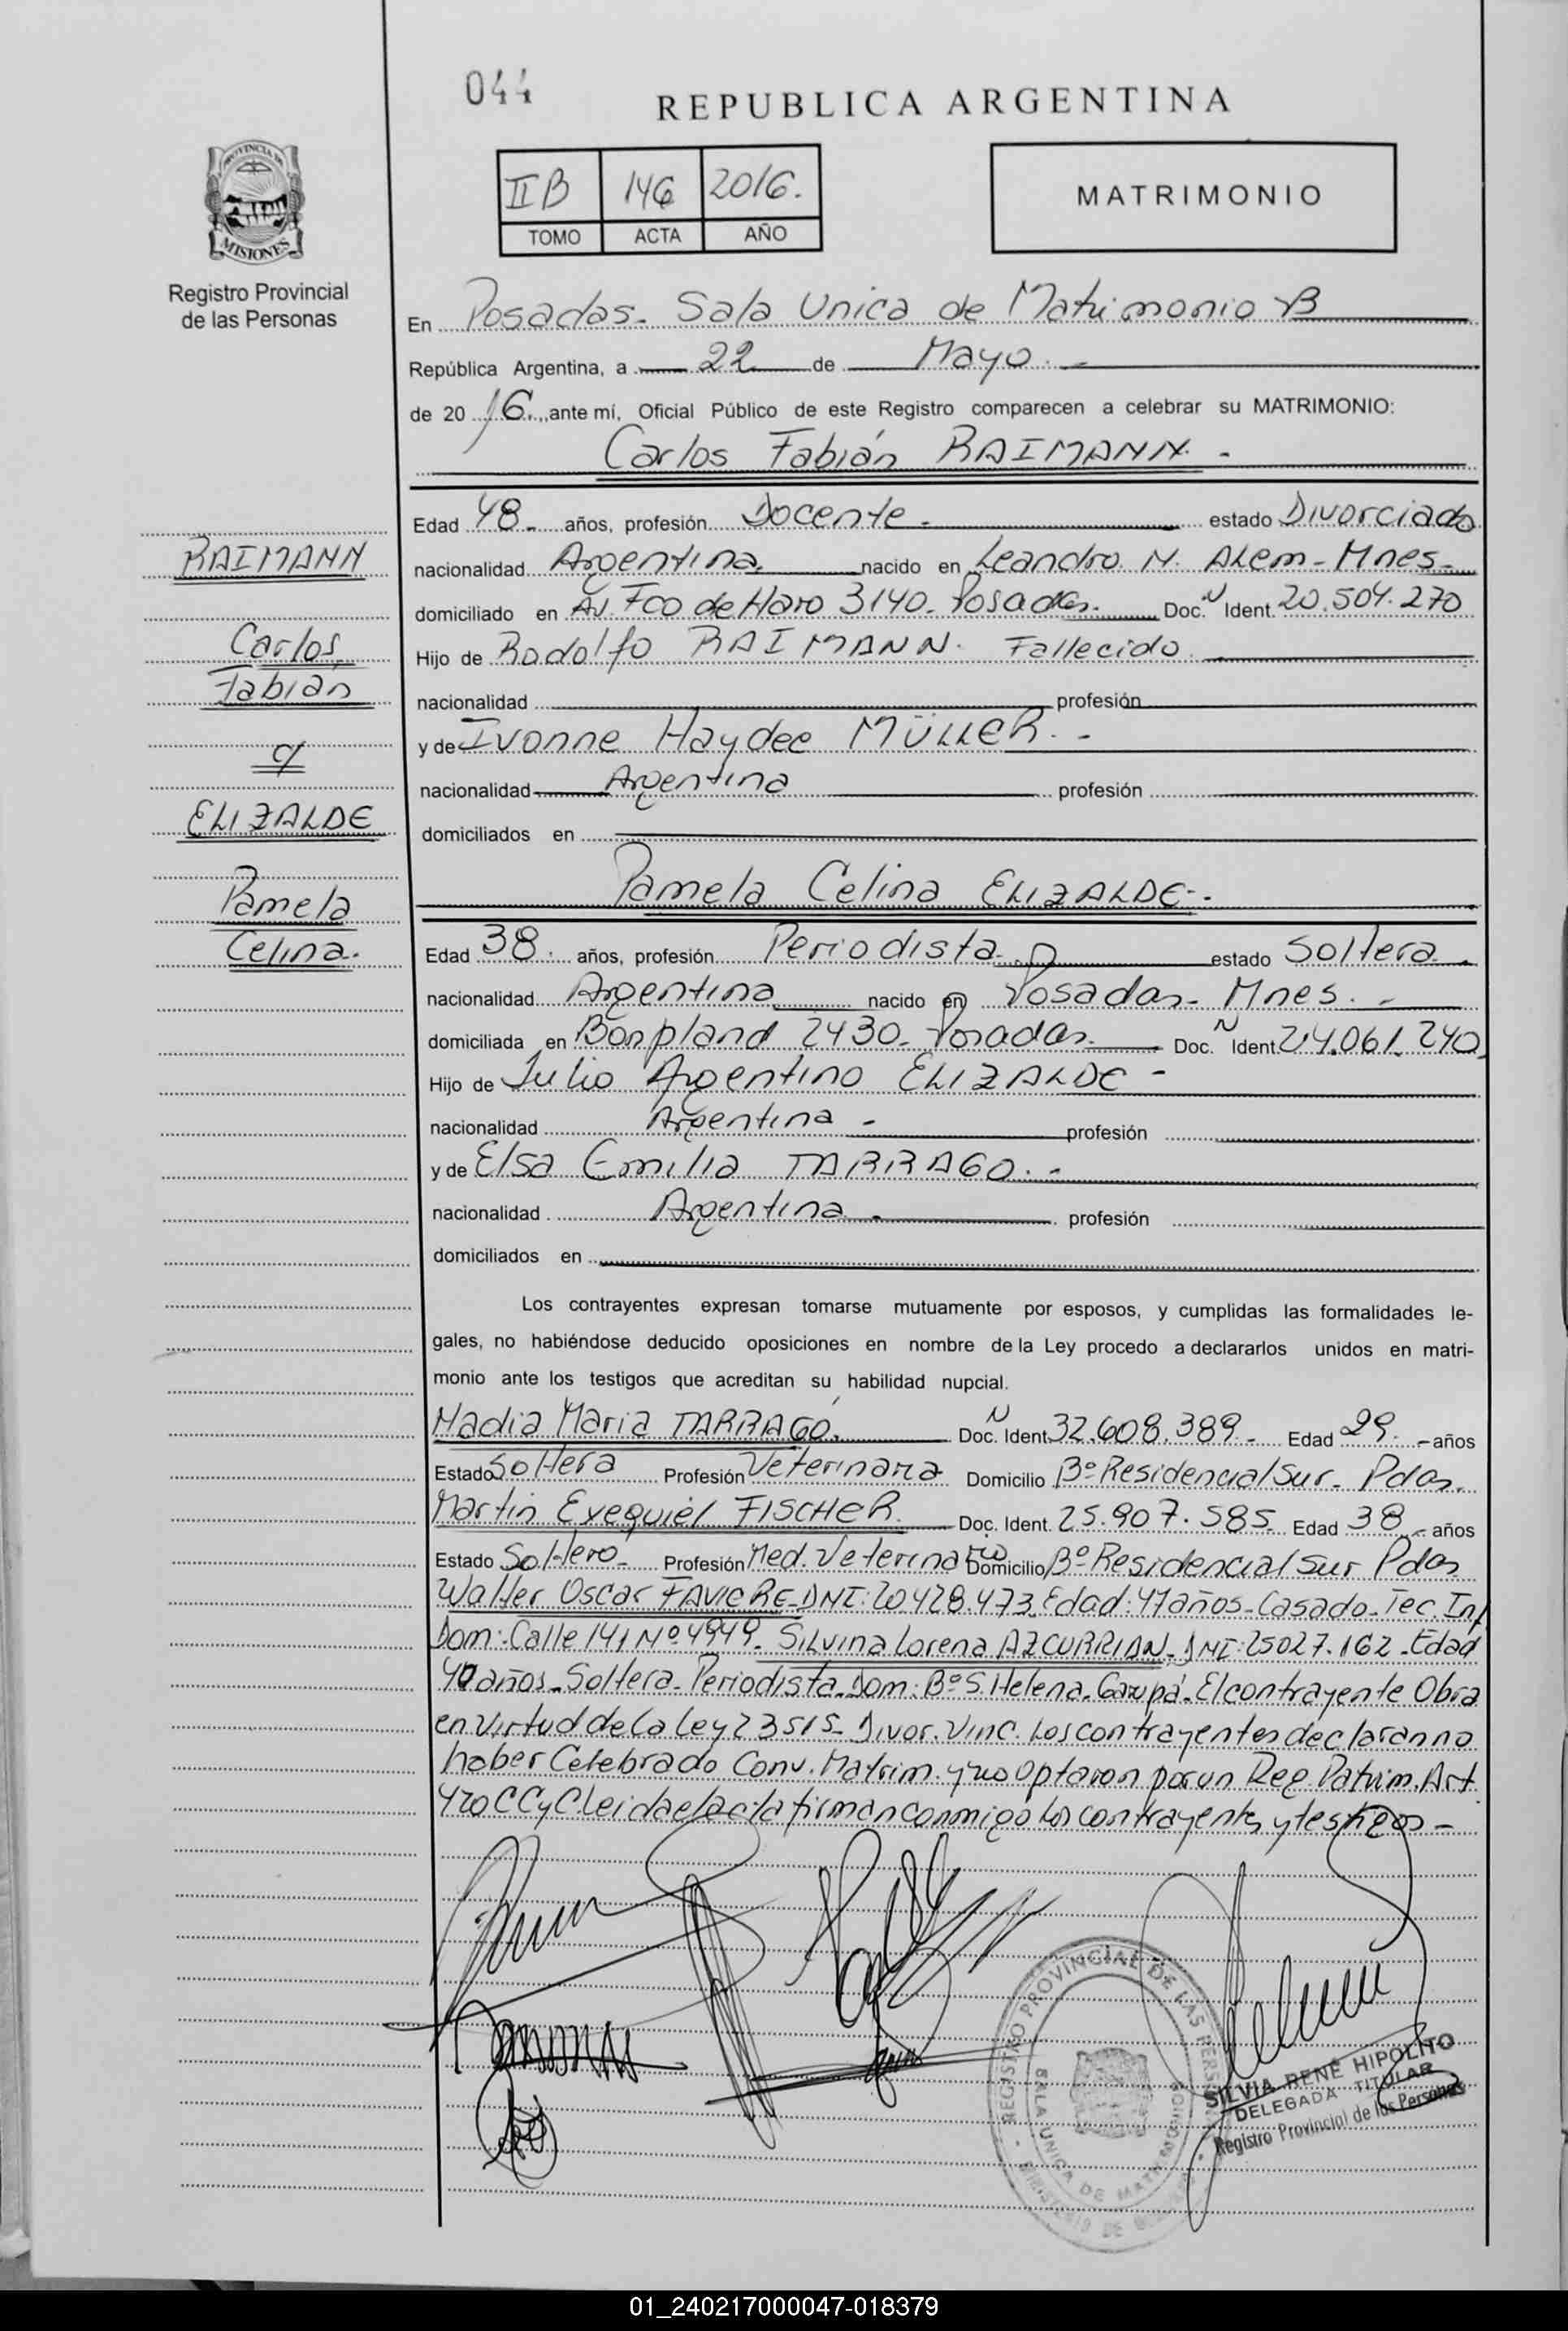 044
REPUBLICA ARGENTINA
PROVINCIA DE
MISIONES
II B 146 2016.
TOMO ACTA AÑO
MATRIMONIO
Registro Provincial
de las Personas
En Posadas. Sala Unica de Matrimonio B
República Argentina, a 22 de Mayo.
de 2016., ante mí, Oficial Público de este Registro comparecen a celebrar su MATRIMONIO:
Carlos Fabián RAIMANN. -
Edad 48. años, profesión Docente. estado Divorciado
RAIMANN
nacionalidad Argentina. nacido en Leandro N. ALem - Mnes-
domiciliado en Av. Fco de Haro 3140. Posadas. Doc. N Ident. 20.504.270
Carlos
Hijo de Rodolfo RAIMANN. Fallecido.
Fabián
nacionalidad profesión
y de Ivonne Haydee MÜLLER. -
c/
nacionalidad Argentina profesión
ELIZALDE
domiciliados en
Pamela Celina ELIZALDE-.
Pamela
Celina.
Edad 38. años, profesión Periodista. estado Soltera.
nacionalidad Argentina nacido en Posadas - Mnes. -
domiciliada en Bonpland 2430. Posadas. Doc. N Ident. 24.061.240
Hijo de Julio Argentino ELIZALDE -
nacionalidad Argentina - profesión
y de Elsa Emilia TARRAGO. -
nacionalidad Argentina. profesión
domiciliados en
Los contrayentes expresan tomarse mutuamente por esposos, y cumplidas las formalidades le-
gales, no habiéndose deducido oposiciones en nombre de la Ley procedo a declararlos unidos en matri-
monio ante los testigos que acreditan su habilidad nupcial.
Nadia Maria TARRAGÓ. Doc. N Ident. 32.608.389. Edad 29. años
Estado Soltera Profesión Veterinaria Domicilio Bº Residencial Sur. Pdas.
Martin Exequiel FISCHER. Doc. Ident. 25.907.585. Edad 38. años
Estado Soltero. Profesión Med. Veterinario Domicilio Bº Residencial Sur Pdas
Walter Oscar FAVIERE. DNI: 20.428.473. Edad: 47 años. Casado. Tec. Inf.
Dom: Calle 141 Nº 4949. SILvina Lorena AZCURRIAN. DNI: 25027.162. Edad
40 años. Soltera. Periodista. Dom: Bº S. Helena. Garupá. El contrayente Obra
en Virtud de la Ley 23515. Divor. Vinc. Los contrayentes declaran no
haber Celebrado Conv. Matrim. y no optaron por un Reg. Patrim. Art.
420 CCyC. leida el acta firman conmigo los contrayentes y testigos -
REGISTRO PROVINCIAL DE LAS PERS
SALA UNICA DE MATRIMONIOS
SILVIA RENÉ HIPOLITO
DELEGADA TITULAR
Registro Provincial de las Personas
01_240217000047-018379